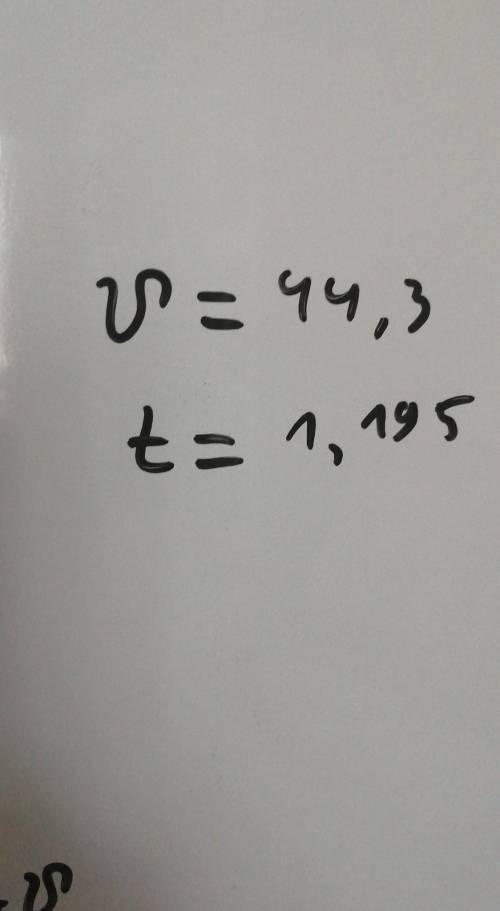 v = 44,3
t = 1,195
v